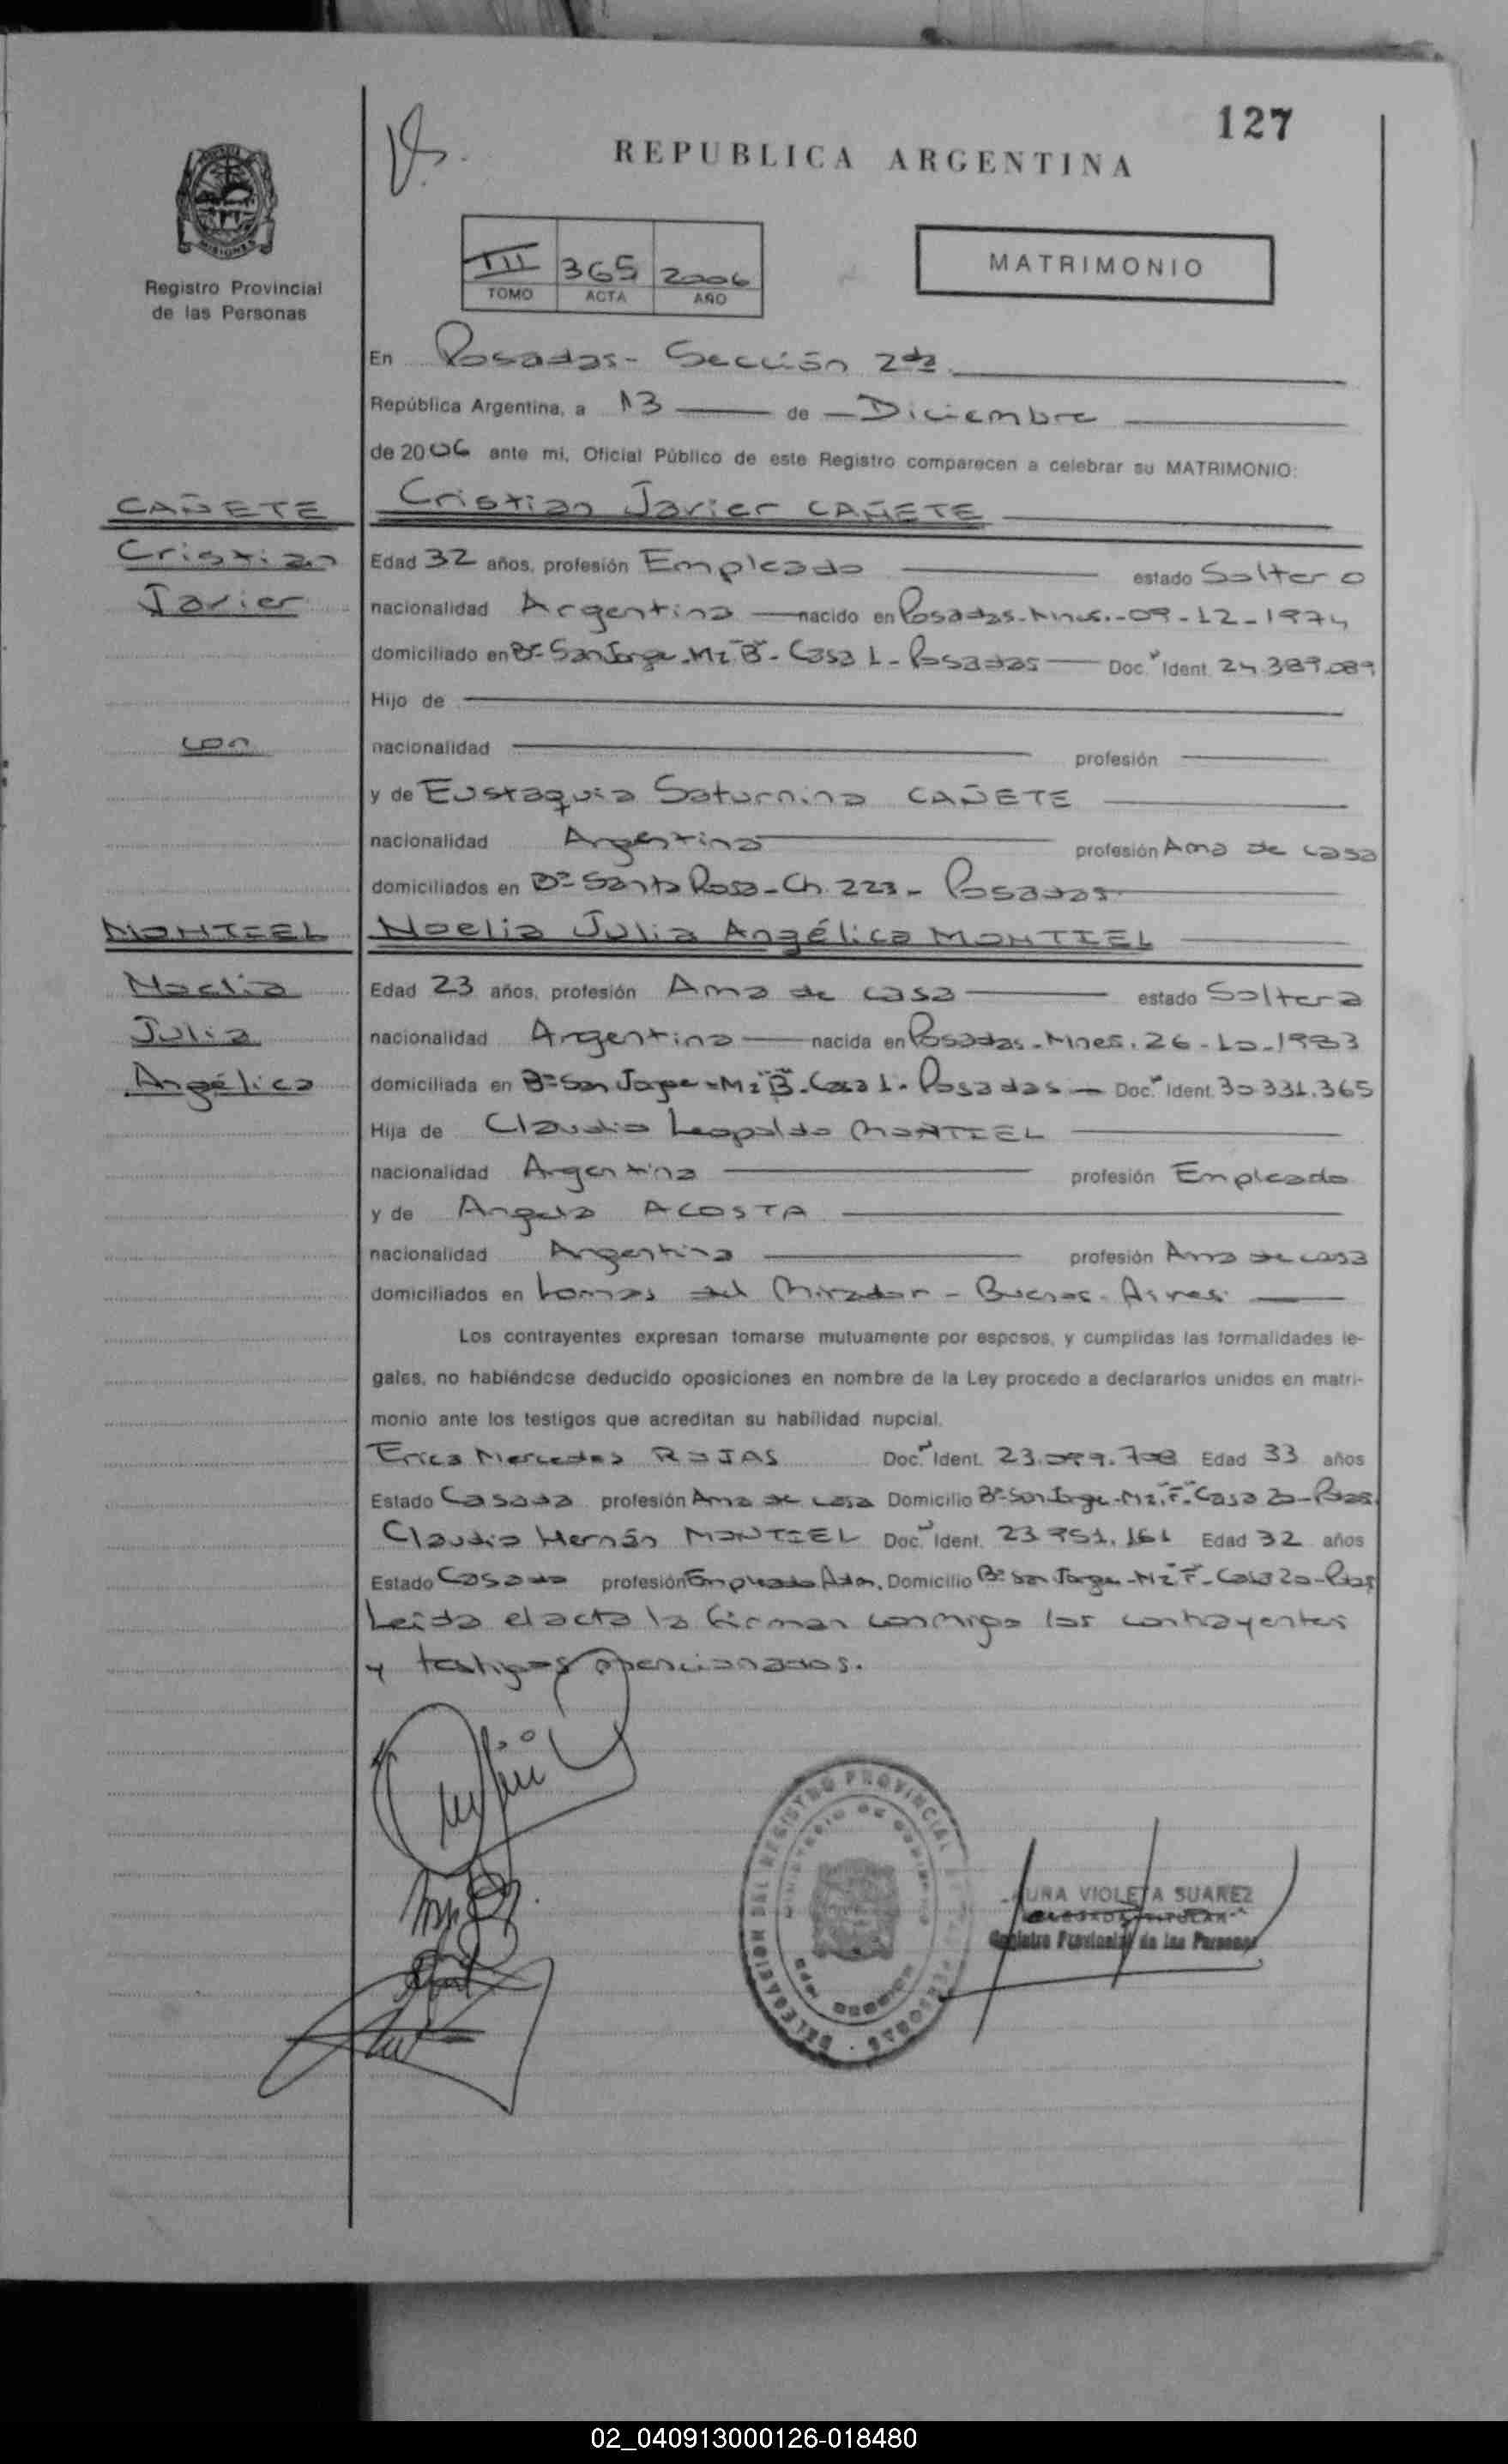 127
REPUBLICA ARGENTINA
MISIONES
Registro Provincial
de las Personas
III 365 2006
TOMO ACTA AÑO
MATRIMONIO
En Posadas - Sección 2da
República Argentina, a 13 de Diciembre
de 2006 ante mi, Oficial Público de este Registro comparecen a celebrar su MATRIMONIO:
CAÑETE Cristian Javier CAÑETE
Cristian Edad 32 años, profesión Empleado estado Soltero
Javier nacionalidad Argentina nacido en Posadas-Mnes.-09-12-1974
domiciliado en Bº San Jorge-Mz "B"-Casa 1-Posadas Doc. Ident. 24.389.089
Hijo de
con nacionalidad profesión
y de Eustaquia Saturnina CAÑETE
nacionalidad Argentina profesión Ama de casa
domiciliados en Bº Santa Rosa-Ch. 223- Posadas
MONTIEL Noelia Julia Angélica MONTIEL
Noelia Edad 23 años, profesión Ama de casa estado Soltera
Julia nacionalidad Argentina nacida en Posadas-Mnes. 26-10-1983
Angélica domiciliada en Bº San Jorge-Mz "B"-Casa 1-Posadas Doc. Ident. 30.331.365
Hija de Claudio Leopoldo MONTIEL
nacionalidad Argentina profesión Empleado
y de Angela ACOSTA
nacionalidad Argentina profesión Ama de casa
domiciliados en Lomas del Mirador - Buenos Aires
Los contrayentes expresan tomarse mutuamente por esposos, y cumplidas las formalidades le-
gales, no habiéndose deducido oposiciones en nombre de la Ley procedo a declararlos unidos en matri-
monio ante los testigos que acreditan su habilidad nupcial.
Erica Mercedes ROJAS Doc. Ident. 23.099.708 Edad 33 años
Estado Casada profesión Ama de casa Domicilio Bº San Jorge-Mz. "F"-Casa 20-Pdas.
Claudio Hernán MONTIEL Doc. Ident. 23.951.161 Edad 32 años
Estado Casado profesión Empleado Adm. Domicilio Bº San Jorge-Mz "F"-Casa 20-Pdas
Leida el acta la firman conmigo los contrayentes
y testigos mencionados.
DELEGACION DEL REGISTRO PROVINCIAL DE LAS PERSONAS
MINISTERIO DE GOBIERNO
VIOLETA SUAREZ
DELEGADA TITULAR
Registro Provincial de las Personas
02_040913000126-018480